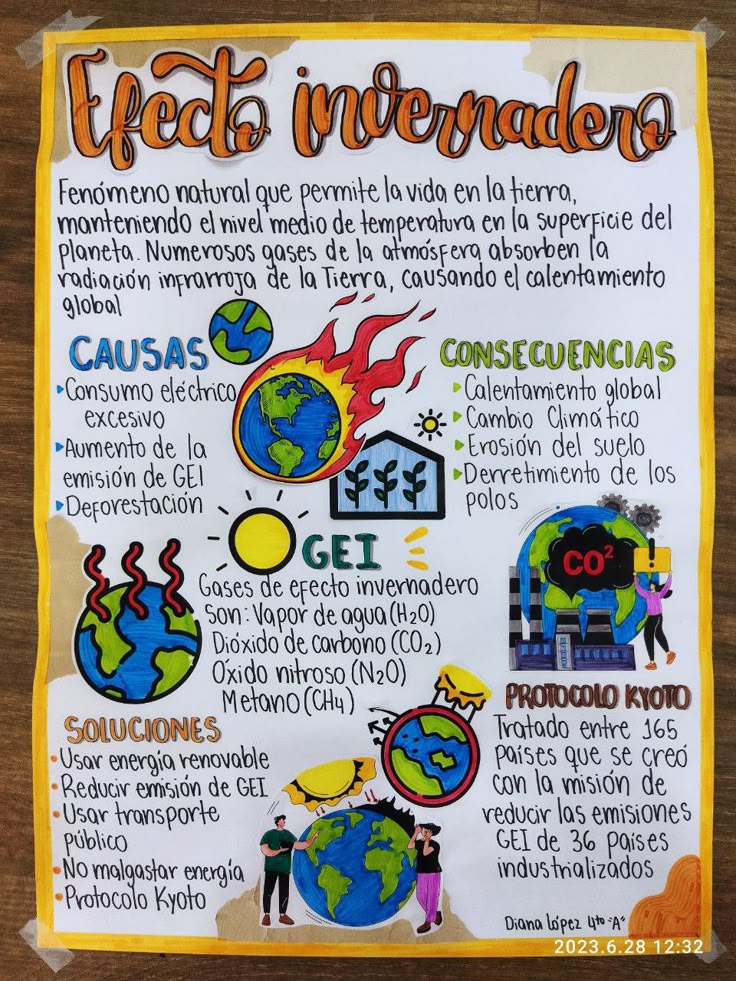 Efecto invernadero
Fenómeno natural que permite la vida en la tierra,
manteniendo el nivel medio de temperatura en la superficie del
planeta. Numerosos gases de la atmósfera absorben la
radiación infrarroja de la Tierra, causando el calentamiento
global
CAUSAS
Consumo eléctrico
excesivo
Aumento de la
emisión de GEI
Deforestación
CONSECUENCIAS
Calentamiento global
Cambio Climático
Erosión del suelo
Derretimiento de los
polos
GEI
Gases de efecto invernadero
son: Vapor de agua (H₂O)
Dióxido de carbono (CO₂)
Óxido nitroso (N₂O)
Metano (CH₄)
CO²
!
SOLUCIONES
Usar energía renovable
Reducir emisión de GEI
Usar transporte
público
No malgastar energía
Protocolo Kyoto
PROTOCOLO KYOTO
Tratado entre 165
países que se creó
con la misión de
reducir las emisiones
GEI de 36 países
industrializados
Diana López 4to "A"
2023.6.28 12:32